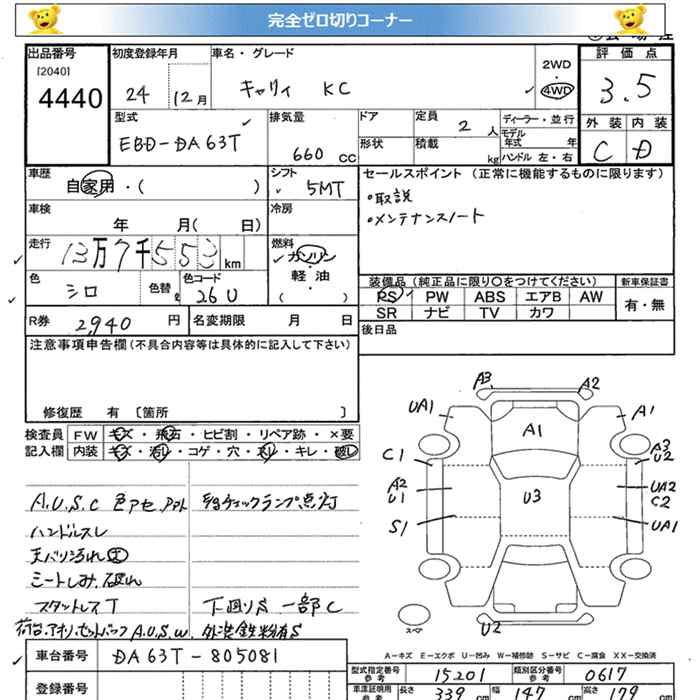 完全ゼロ切りコーナー
出品番号
[2040]
4440
初度登録年月
24 12月
車名・グレード
キャリィ KC
2WD
4WD
評価点
3.5
外装 内装
C D
型式
EBD-DA63T
排気量
660 CC
ドア
形状
定員
2 人
積載
kg
ディーラー・並行
モデル
年式 年
ハンドル 左・右
車歴
自家用・( )
シフト
5MT
セールスポイント (正常に機能するものに限ります)
・取説
・メンテナンスノート
車検
年 月( 日)
冷房
走行
13万7千553 km
燃料
ガソリン
軽油
( )
色
シロ
色替
色コード
26U
装備品(純正品に限り○をつけてください)
新車保証書
PS PW ABS エアB AW
SR ナビ TV カワ
有・無
R券 2,940 円
名変期限 月 日
後日品
注意事項申告欄(不具合内容等は具体的に記入して下さい)
修復歴 有 〔箇所 〕
検査員
記入欄
FW キズ・飛石・ヒビ割・リペア跡・×要
内装 キズ・汚レ・コゲ・穴・スレ・キレ・破レ
A.U.S.C 色アセ
チェックランプ点灯
ハンドルスレ
天バリ汚れ大
シートしみ、破れ
スタットレスT
下廻りS 一部C
荷台、アオリ、セットバック A.U.S.W. 外装鉄粉有S
A3 A2
UA1 A1
A1
C1
A3
U2
A2
U1
U3
UA2
C2
S1
UA1
スペア
U2
A-キズ E-エクボ U-凹み W-補修跡 S-サビ C-腐食 XX-交換済
車台番号
DA63T-805081
登録番号
型式指定番号
参考
15201
類別区分番号
参考
0617
車庫証明用
参考
長さ 339 cm
幅 147 cm
高さ 179 cm